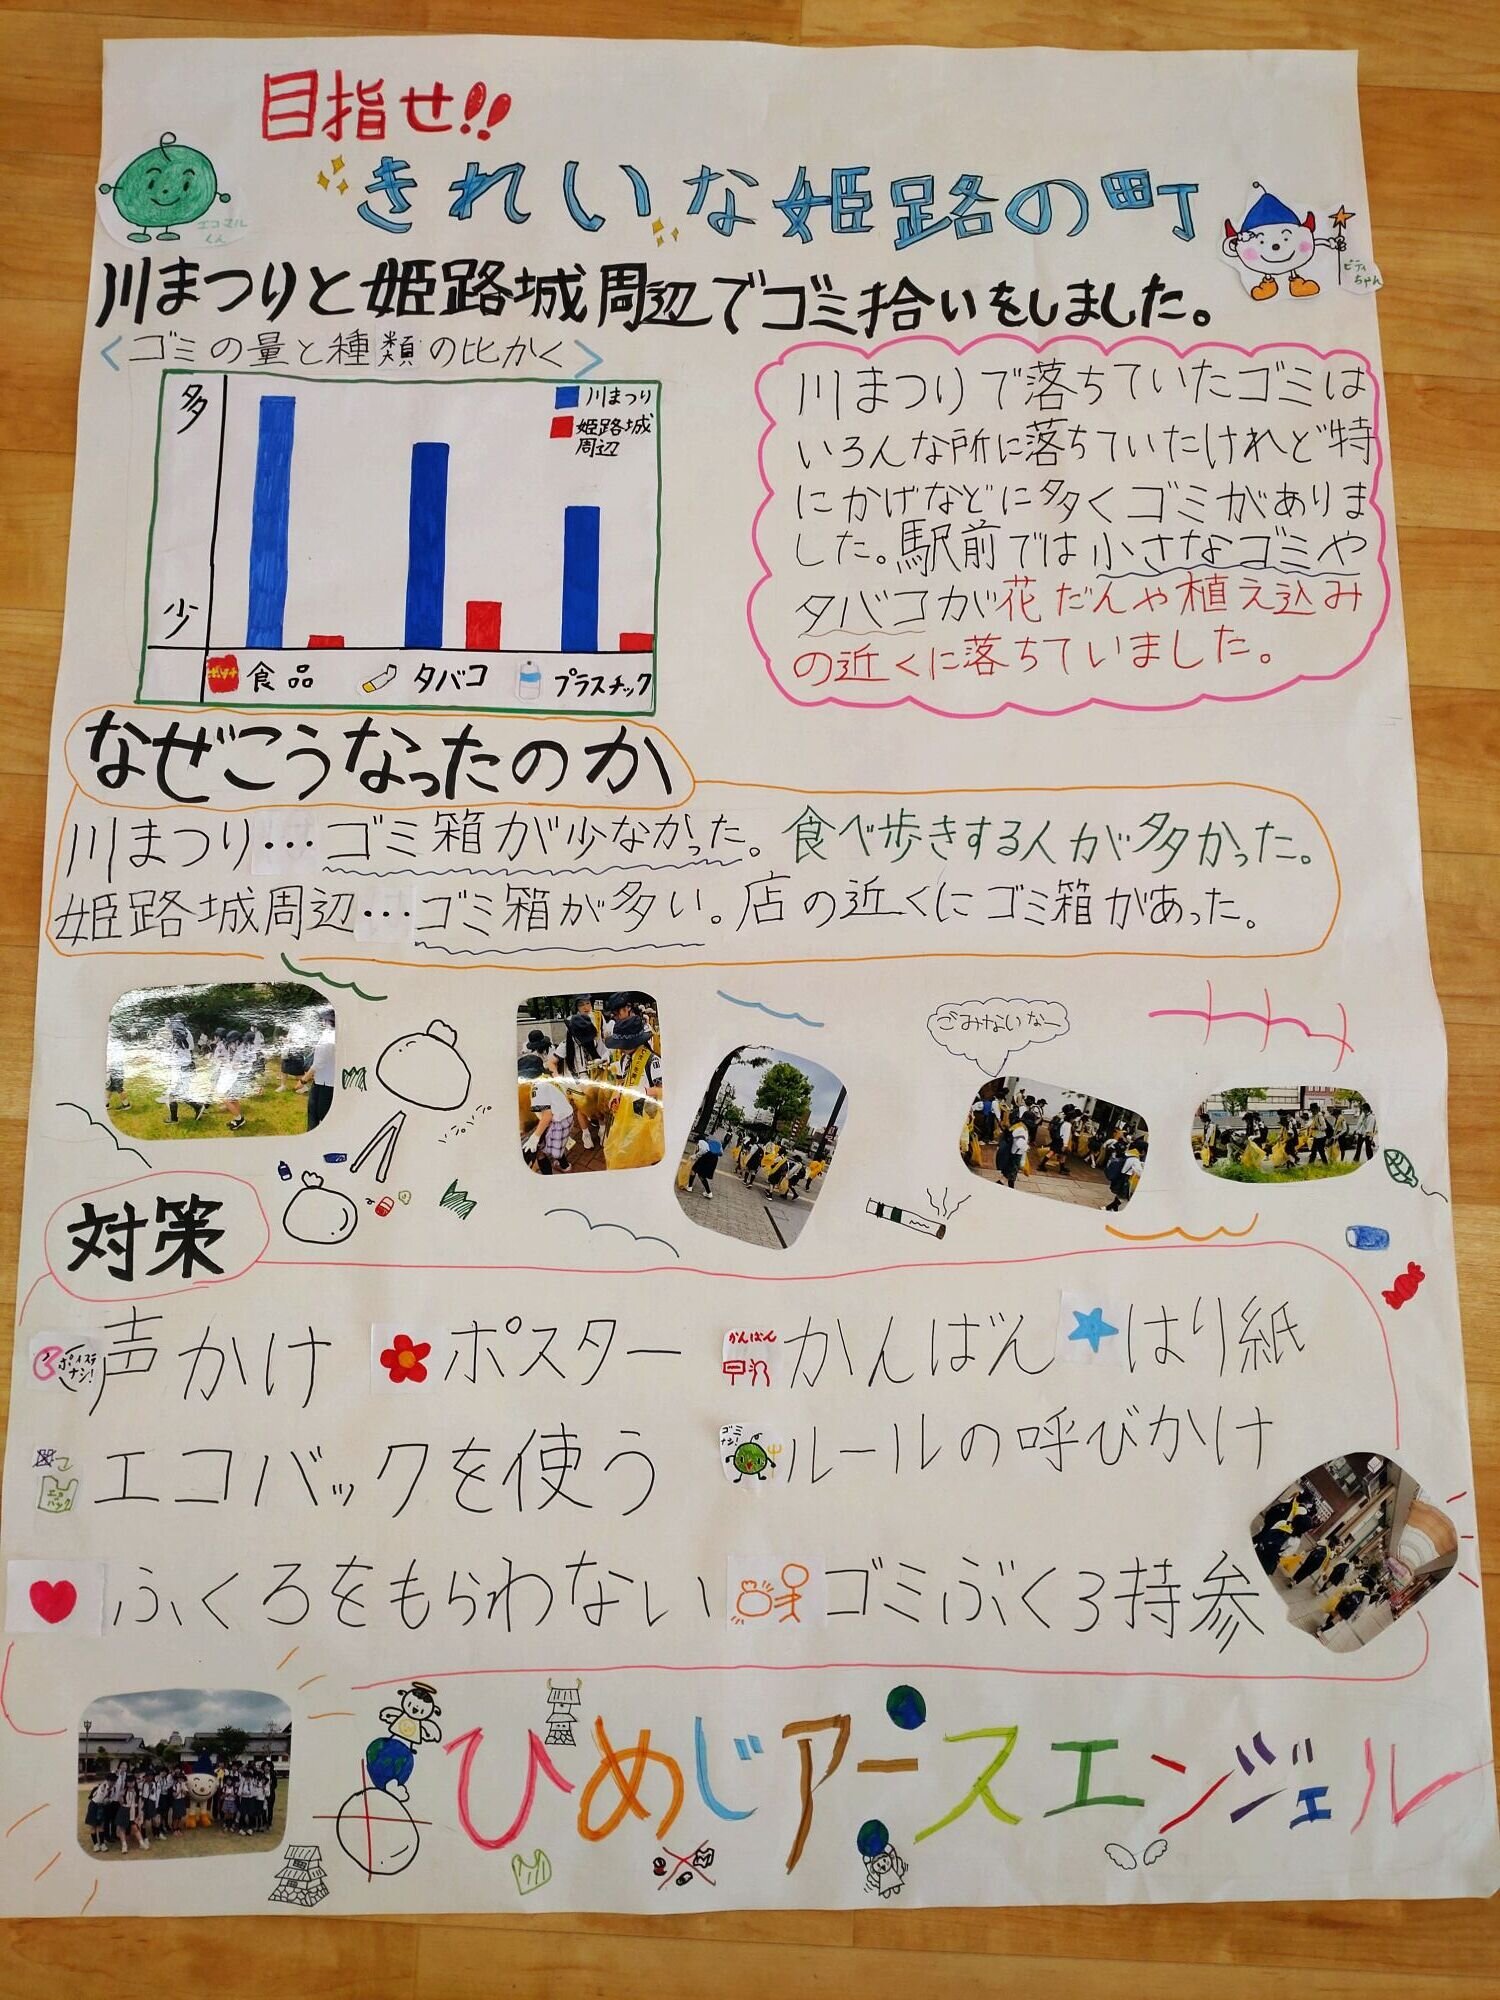 目指せ!!
きれいな姫路の町
エコマル
くん
ピティ
ちゃん
川まつりと姫路城周辺でゴミ拾いをしました。
<ゴミの量と種類の比かく>
多
少
川まつり
姫路城
周辺
ポテチ 食品 タバコ プラスチック
川まつりで落ちていたゴミは
いろんな所に落ちていたけれど特
にかげなどに多くゴミがありま
した。駅前では小さなゴミや
タバコが花だんや植え込み
の近くに落ちていました。
なぜこうなったのか
川まつり…ゴミ箱が少なかった。食べ歩きする人が多かった。
姫路城周辺…ゴミ箱が多い。店の近くにゴミ箱があった。
ごみないなー
対策
ポイステ
ナシ!
声かけ ポスター
かんばん
かんばん はり紙
エコ
バック
エコバックを使う
ゴミ
ナシ!
ルールの呼びかけ
ふくろをもらわない ゴミぶくろ持参
ひめじアースエンジェル